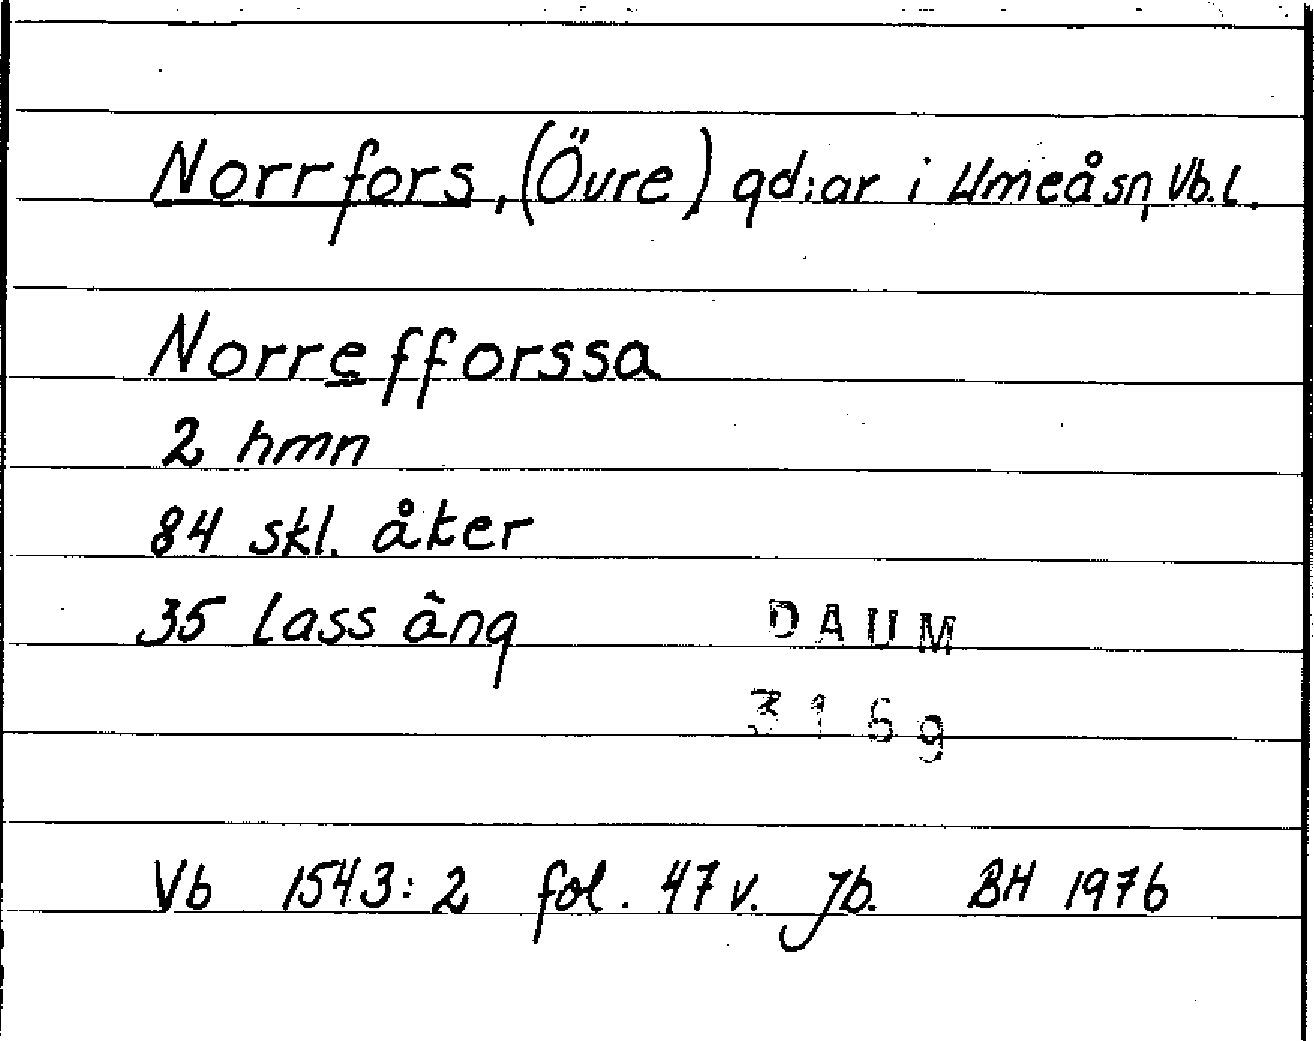 Norrfors, (Övre) gd:ar i Umeå sn, Vb.l.
Norrefforssa
2 hmn
84 skl. åker
35 lass äng
DAUM
3169
Vb 1543:2 fol. 47 v. Jb. BH 1976